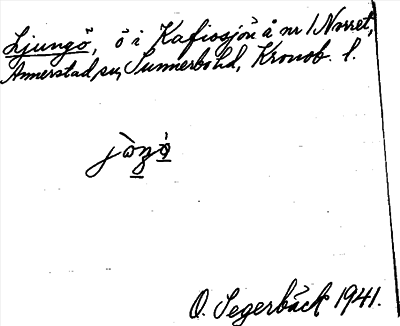 Ljungö, ö i Kafiosjön å nr 1 Norret,
Annerstad sn, Sunnerbo hd, Kronob. l.
O. Segerbäck 1941.